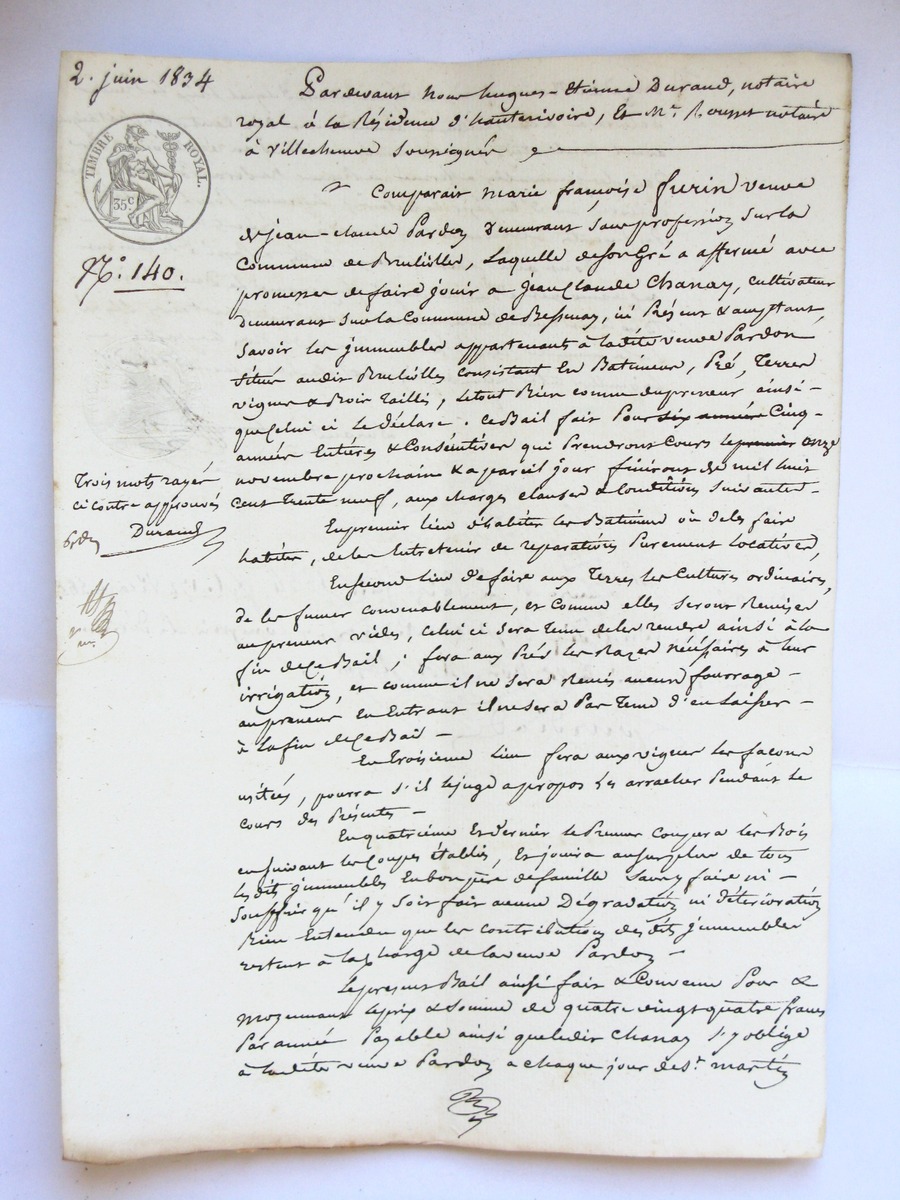 2. juin 1834
TIMBRE ROYAL.
35c
N.o 140.
Trois mots rayés
ci contre approuvés
Durand
Pardevant nous hugues-Etienne Durand, notaire
royal à la Résidence d'hauterivoire, Et Me. Rousset notaire
à Villecheneve soussignés
Comparait marie françoise furin veuve
de jean-claude Pardon demeurant sans profession sur la
Commune de Brulioles, Laquelle de son Gré a affermé avec
promesse de faire jouir a jean Claude Chanay, cultivateur
demeurant sur la Commune de Bessenay, ici Présent & acceptant,
Savoir les jmmeubles appartenant à ladite veuve Pardon
situés audit Brulioles consistant En Batiments, Pré, Terres
vignes & Bois Taillis, le tout Bien connu du preneur ainsi-
que Celui ci le déclare. Ce Bail fait Pour six années Cinq-
années Entières & Consécutives qui Prendront Cours le premier onze
novembre prochain & a pareil jour finiront de mil huit
Cent Trente neuf, aux charges clauses & Conditions suivantes-
En premier lieu d'habiter les Batiments ou de les faire
habiter, de les Entretenir de reparations Purement Locatives,
En second lieu de faire aux Terres les Cultures ordinaires,
de les fumer convenablement, et comme elles seront Remises
au preneur vides, celui ci sera Tenu de les rendre ainsi à la
fin de Ce Bail; fera aux Prés les Razes nécessaires à leur
irrigation, et comme il ne sera Remis aucun fourrage-
au preneur En Entrant il ne sera Pas Tenu d'en Laisser-
à la fin de Ce Bail-
En Troisieme Lieu fera aux vignes les façons
usitées, pourra s'il le juge a propos Les arracher Pendant le
cours des Présentes-
En quatrième Et dernier le Preneur Coupera les Bois
en suivant les Coupes établies, Et jouira au surplus de tous
les dits jmmeubles En bon père de famille sans y faire ni-
Souffrir qu'il y soit fait aucune Dégradation ni détérioration
Bien Entendu que les contributions desdits jmmeubles
restent à la charge de la veuve Pardon-
Le present Bail ainsi fait & Convenu Pour &
moyennant le prix & somme de quatre vingt quatre francs
Par année Payable ainsi que ledit Chanay s'y oblige
à ladite veuve Pardon a chaque jour de st. martin